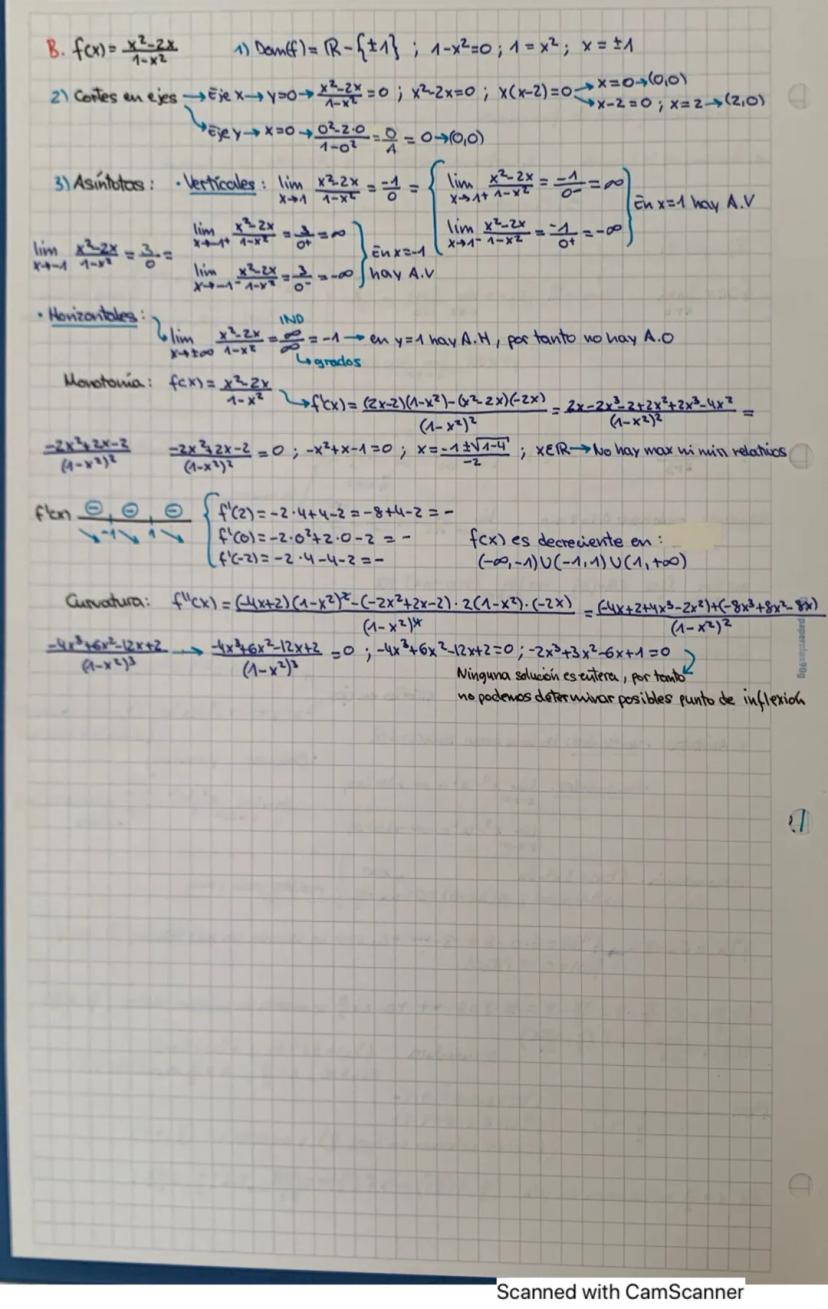 B. f(x) = x²-2x / 1-x²   1) Dom(f) = ℝ - {±1} ; 1-x²=0 ; 1 = x² ; x = ±1
2) Cortes en ejes → Eje x → y=0 → x²-2x / 1-x² = 0 ; x²-2x=0 ; x(x-2)=0 → x=0 → (0,0)
→ x-2=0 ; x=2 → (2,0)
→ Eje y → x=0 → 0²-2·0 / 1-0² = 0/1 = 0 → (0,0)
3) Asíntotas: · Verticales: lim x→1 x²-2x / 1-x² = -1/0 = { lim x→1⁺ x²-2x / 1-x² = -1/0⁻ = ∞
lim x→1⁻ x²-2x / 1-x² = -1/0⁺ = -∞ } En x=1 hay A.V
lim x→-1 x²-2x / 1-x² = 3/0 = lim x→-1⁺ x²-2x / 1-x² = 3/0⁺ = ∞
lim x→-1⁻ x²-2x / 1-x² = 3/0⁻ = -∞ } En x=-1 hay A.V
· Horizontales: IND
lim x→±∞ x²-2x / 1-x² = ∞/∞ = -1 → en y=1 hay A.H, por tanto no hay A.O
↳ grados
Monotonía: f(x) = x²-2x / 1-x² → f'(x) = (2x-2)(1-x²)-(x²-2x)(-2x) / (1-x²)² = 2x-2x³-2+2x²+2x³-4x² / (1-x²)² =
-2x²+2x-2 / (1-x²)²   -2x²+2x-2 / (1-x²)² = 0 ; -x²+x-1=0 ; x = -1±√1-4 / -2 ; x∉ℝ → No hay max ni min relativos
f'(x) ⊖ -1 ⊖ 1 ⊖ { f'(2) = -2·4+4-2 = -8+4-2 = -
f'(0) = -2·0²+2·0-2 = -   f(x) es decreciente en :
f'(-2) = -2·4-4-2 = -   (-∞,-1)∪(-1,1)∪(1,+∞)
Curvatura: f''(x) = (-4x+2)(1-x²)²-(-2x²+2x-2)·2(1-x²)·(-2x) / (1-x²)⁴ = (-4x+2+4x³-2x²)+(-8x³+8x²-8x) / (1-x²)²
-4x³+6x²-12x+2 / (1-x²)³ → -4x³+6x²-12x+2 / (1-x²)³ = 0 ; -4x³+6x²-12x+2=0 ; -2x³+3x²-6x+1=0
Ninguna solución es entera, por tanto
no podemos determinar posibles punto de inflexion
Scanned with CamScanner